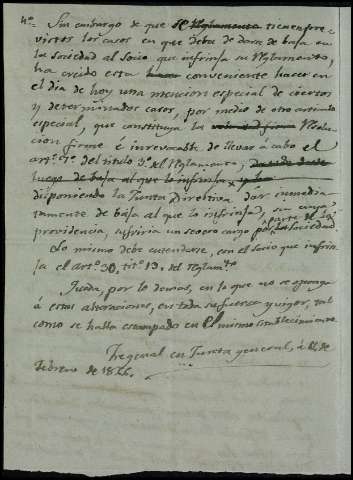 4º Sin embargo de que el Reglamento tiene pre-
vistos los casos en que deba de darse de baja en
la Sociedad al Socio que infrinja su Reglamento,
ha creido esta conveniente hacer en
el dia de hoy una mencion especial de ciertos
y determinados casos, por medio de otro articulo
especial, que constituya la Resolu-
cion firme é irrevocable de llevar á cabo el
artº 7º del titulo 3º del Reglamento,
luego de baja al que lo infrinja
disponiendo la Junta Directiva dar inmedia-
tamente de baja al que lo infrinja, sin cuya
providencia, sufriria un severo cargo por parte de la Sociedad.
Lo mismo debe entenderse, con el Socio que infrin-
ja el artº 30, titº 13. del Reglamto
Queda, por lo demas, en lo que no se oponga
á estas alteraciones, en toda su fuerza y vigor, tal
como se halla estampado en el mismo Establecimiento.
en Junta general, á de
Febrero de 1866.